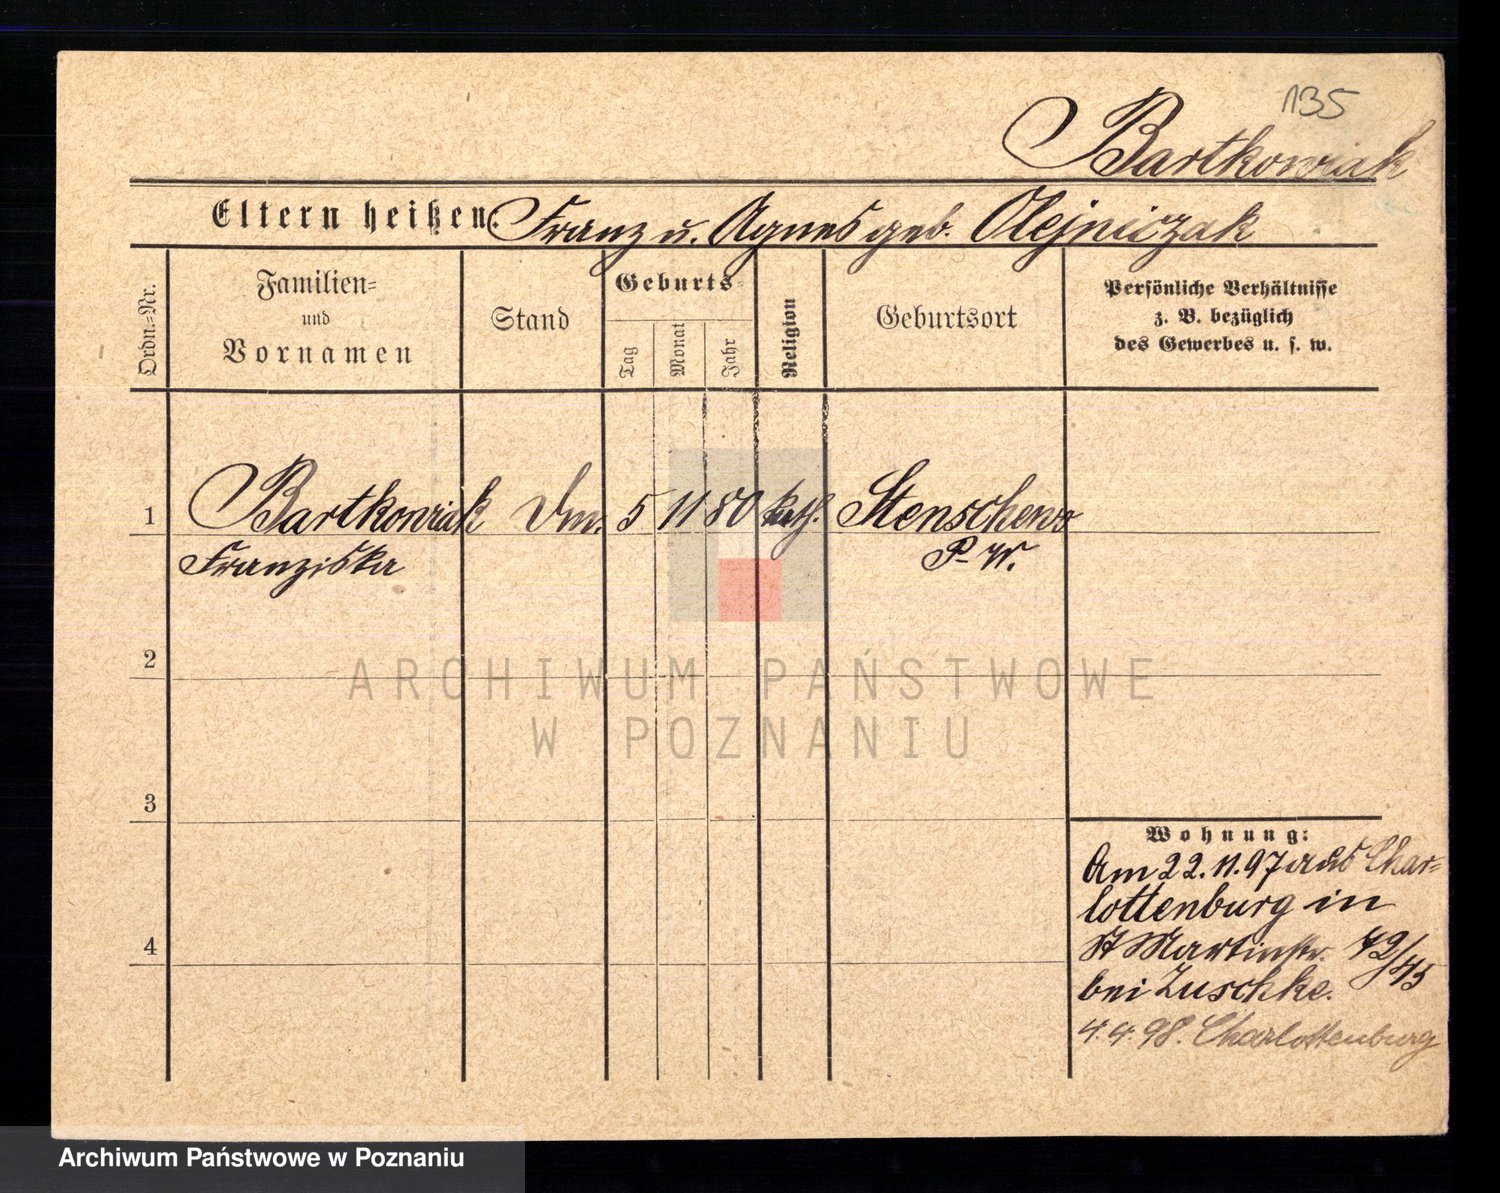 135
Bartkowiak
Eltern heißen: Franz u. Agnes geb. Olejniczak
Ordn.-Nr.
Familien-
und
Vornamen
Stand
Geburts-
Tag
Monat
Jahr
Religion
Geburtsort
Persönliche Verhältnisse
z. B. bezüglich
des Gewerbes u. s. w.
1 Bartkowiak 5 11 80 kath. Stenschewo
Franziska P. W.
2
3
4
Wohnung:
Am 22.11.97 aus Char-
lottenburg in
St Martinstr. 42/45
bei Zuschke.
4.4.98. Charlottenburg
ARCHIWUM PAŃSTWOWE
W POZNANIU
Archiwum Państwowe w Poznaniu